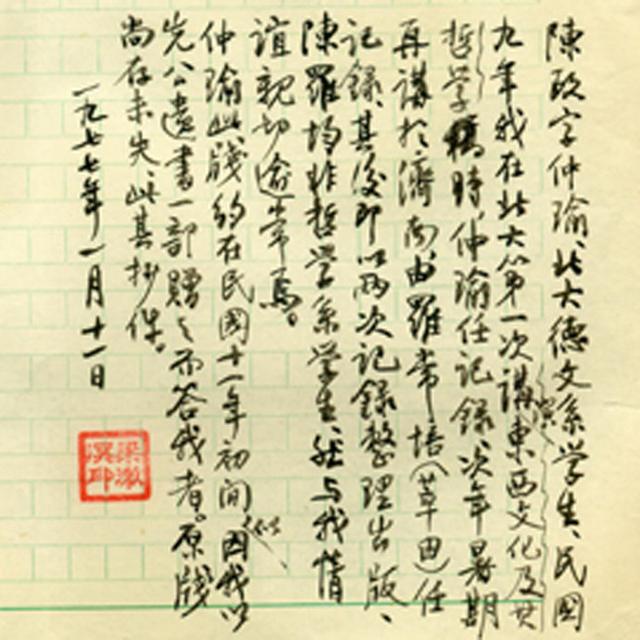 陳政字仲瑜、北大德文系學生、民國
九年我在北大第一次講演東西文化及其
哲学時,仲瑜任記録、次年暑期
再講於濟南由羅常培(莘田)任
記録、其後即以兩次記録整理出版、
陳羅均非哲学系學生、然与我情
誼親切逾常焉。
仲瑜此牋約在民國十一年初間、因我以
先公遺書一部贈之而答我者。原牋
尚存未失、此其抄件。
一九七七年一月十一日
梁漱溟印